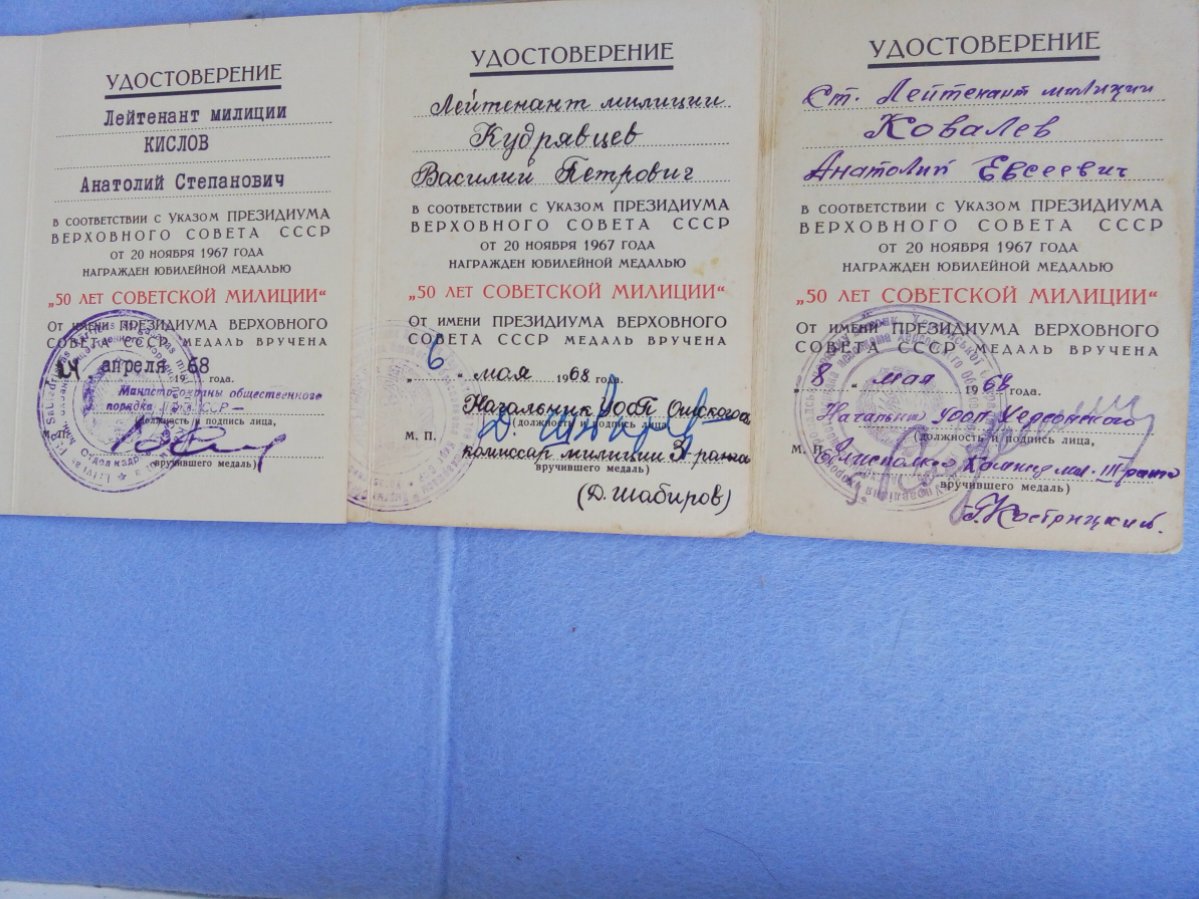 УДОСТОВЕРЕНИЕ
Лейтенант милиции
КИСЛОВ
Анатолий Степанович
В СООТВЕТСТВИИ С УКАЗОМ ПРЕЗИДИУМА
ВЕРХОВНОГО СОВЕТА СССР
ОТ 20 НОЯБРЯ 1967 ГОДА
НАГРАЖДЕН ЮБИЛЕЙНОЙ МЕДАЛЬЮ
„50 ЛЕТ СОВЕТСКОЙ МИЛИЦИИ“
ОТ ИМЕНИ ПРЕЗИДИУМА ВЕРХОВНОГО
СОВЕТА СССР МЕДАЛЬ ВРУЧЕНА
24 апреля 1968 года.
Министр охраны общественного
порядка ССР
(должность и подпись лица,
вручившего медаль)
УДОСТОВЕРЕНИЕ
Лейтенант милиции
Кудрявцев
Василий Петрович
В СООТВЕТСТВИИ С УКАЗОМ ПРЕЗИДИУМА
ВЕРХОВНОГО СОВЕТА СССР
ОТ 20 НОЯБРЯ 1967 ГОДА
НАГРАЖДЕН ЮБИЛЕЙНОЙ МЕДАЛЬЮ
„50 ЛЕТ СОВЕТСКОЙ МИЛИЦИИ“
ОТ ИМЕНИ ПРЕЗИДИУМА ВЕРХОВНОГО
СОВЕТА СССР МЕДАЛЬ ВРУЧЕНА
„6“ мая 1968 года.
Начальник УООП Ошского
(должность и подпись лица,
М. П.
комиссар милиции 3 ранга
вручившего медаль)
(Д. Шабиров)
УДОСТОВЕРЕНИЕ
Ст. Лейтенант милиции
Ковалев
Анатолий Евсеевич
В СООТВЕТСТВИИ С УКАЗОМ ПРЕЗИДИУМА
ВЕРХОВНОГО СОВЕТА СССР
ОТ 20 НОЯБРЯ 1967 ГОДА
НАГРАЖДЕН ЮБИЛЕЙНОЙ МЕДАЛЬЮ
„50 ЛЕТ СОВЕТСКОЙ МИЛИЦИИ“
ОТ ИМЕНИ ПРЕЗИДИУМА ВЕРХОВНОГО
СОВЕТА СССР МЕДАЛЬ ВРУЧЕНА
„8“ мая 1968 года.
Начальник УООП Херсонского
(должность и подпись лица,
М. П.
облисполкома Комисс. мил. III ранга
вручившего медаль)
Г. Кострицкий.